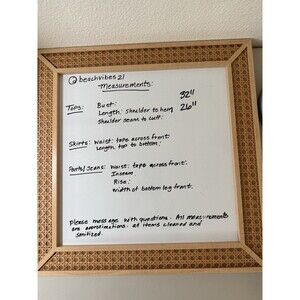 @ beachvibes21
Measurements:
Tops: Bust: 32"
Length: Shoulder to hem 26"
Shoulder seam to cuff:
Skirts: Waist: tape across front:
Length, top to bottom:
Pants/Jeans: Waist: tape across front:
Inseam
Rise:
Width of bottom leg front:
please message with questions. All measurements
are approximations. all items cleaned and
sanitized.